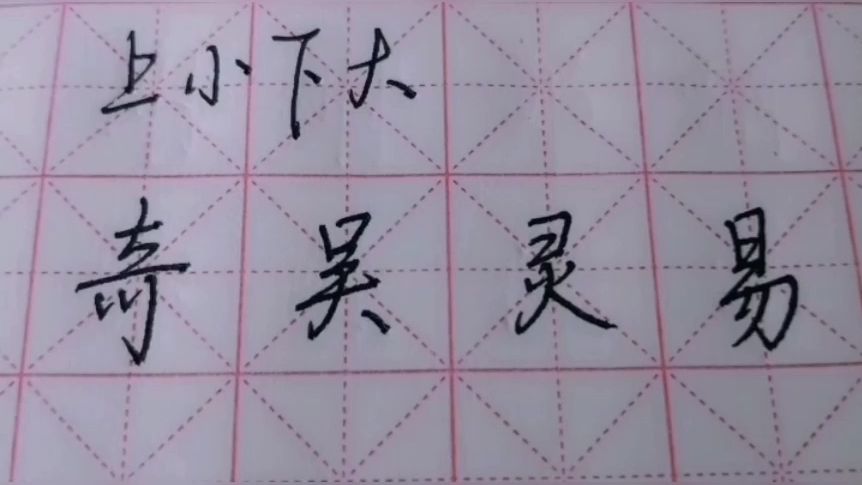 上小下大
奇吴灵易